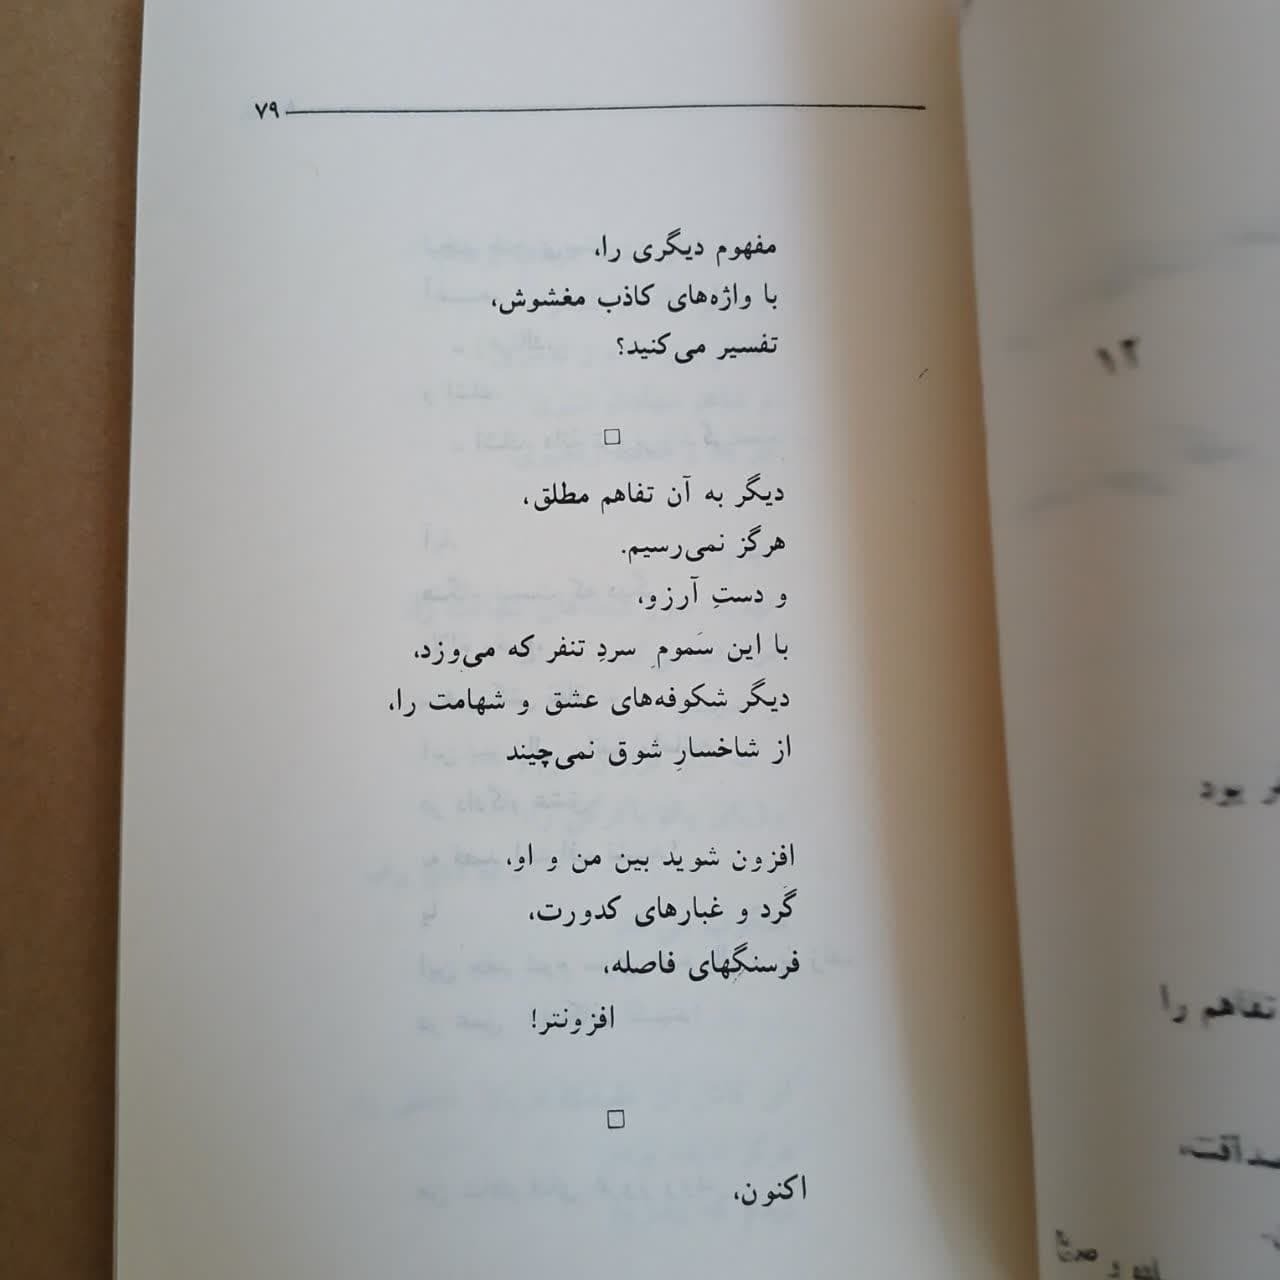 ۷۹
مفهوم دیگری را،
با واژه‌های کاذب مغشوش،
تفسیر می‌کنید؟
دیگر به آن تفاهم مطلق،
هرگز نمی‌رسیم.
و دستِ آرزو،
با این سَمومِ سردِ تنفر که می‌وزد،
دیگر شکوفه‌های عشق و شهامت را،
از شاخسارِ شوق نمی‌چیند
افزون شوید بین من و او،
گَرد و غبارهای کدورت،
فرسنگهای فاصله،
افزونتر!
اکنون،
۱۲
بود
تفاهم را